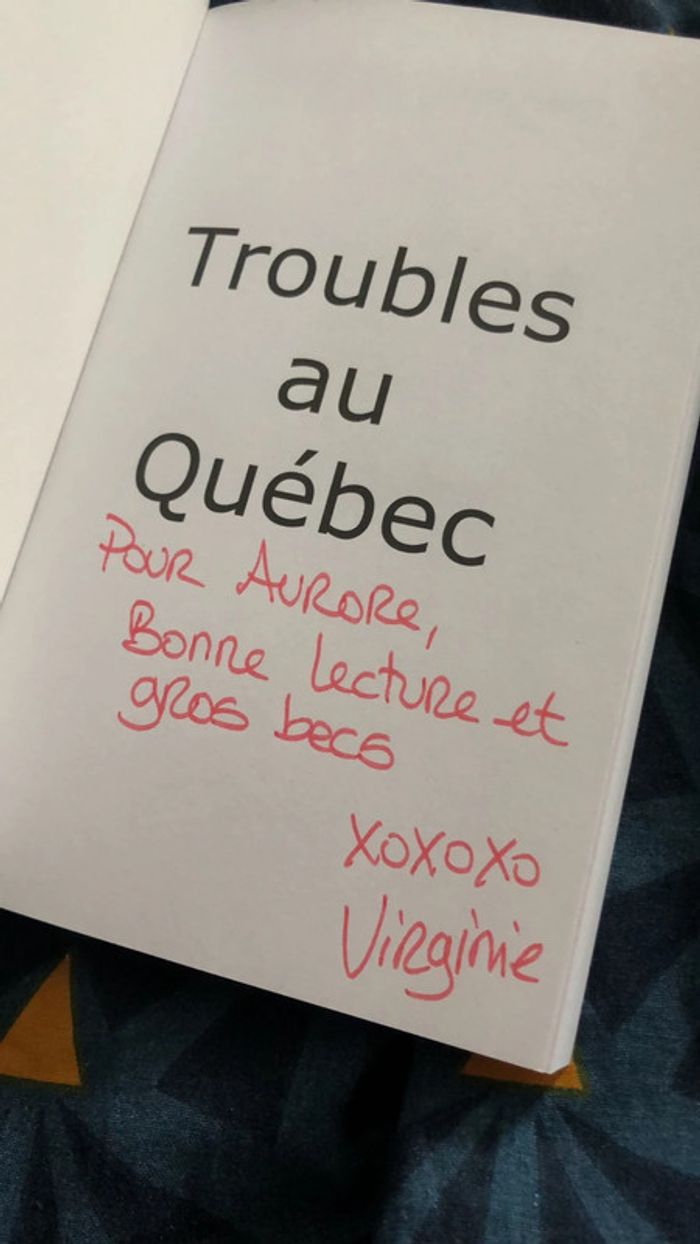 Troubles
au
Québec
Pour Aurore,
Bonne lecture et
gros becs
xoxoxo
Virginie